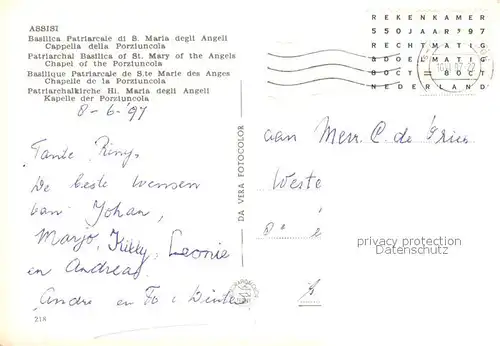 ASSISI
Basilica Patriarcale di S. Maria degli Angeli
Cappella della Porziuncola
Patriarchal Basilica of St. Mary of the Angels
Chapel of the Porziuncola
Basilique Patriarcale de S.te Marie des Anges
Chapelle de la Porziuncola
Patriarchalkirche Hl. Maria degli Angeli
Kapelle der Porziuncola
8-6-'97
Tante
De beste wensen
van Johan,
Marjo, Kitty, Leonie
en Andreas.
Andre en
218
DA VERA FOTOCOLOR
REKENKAMER
550JAAR'97
RECHTMATIG
&DOELMATIG
80CT=80CT
NEDERLAND
aan Mevr. C. de
privacy protection
Datenschutz